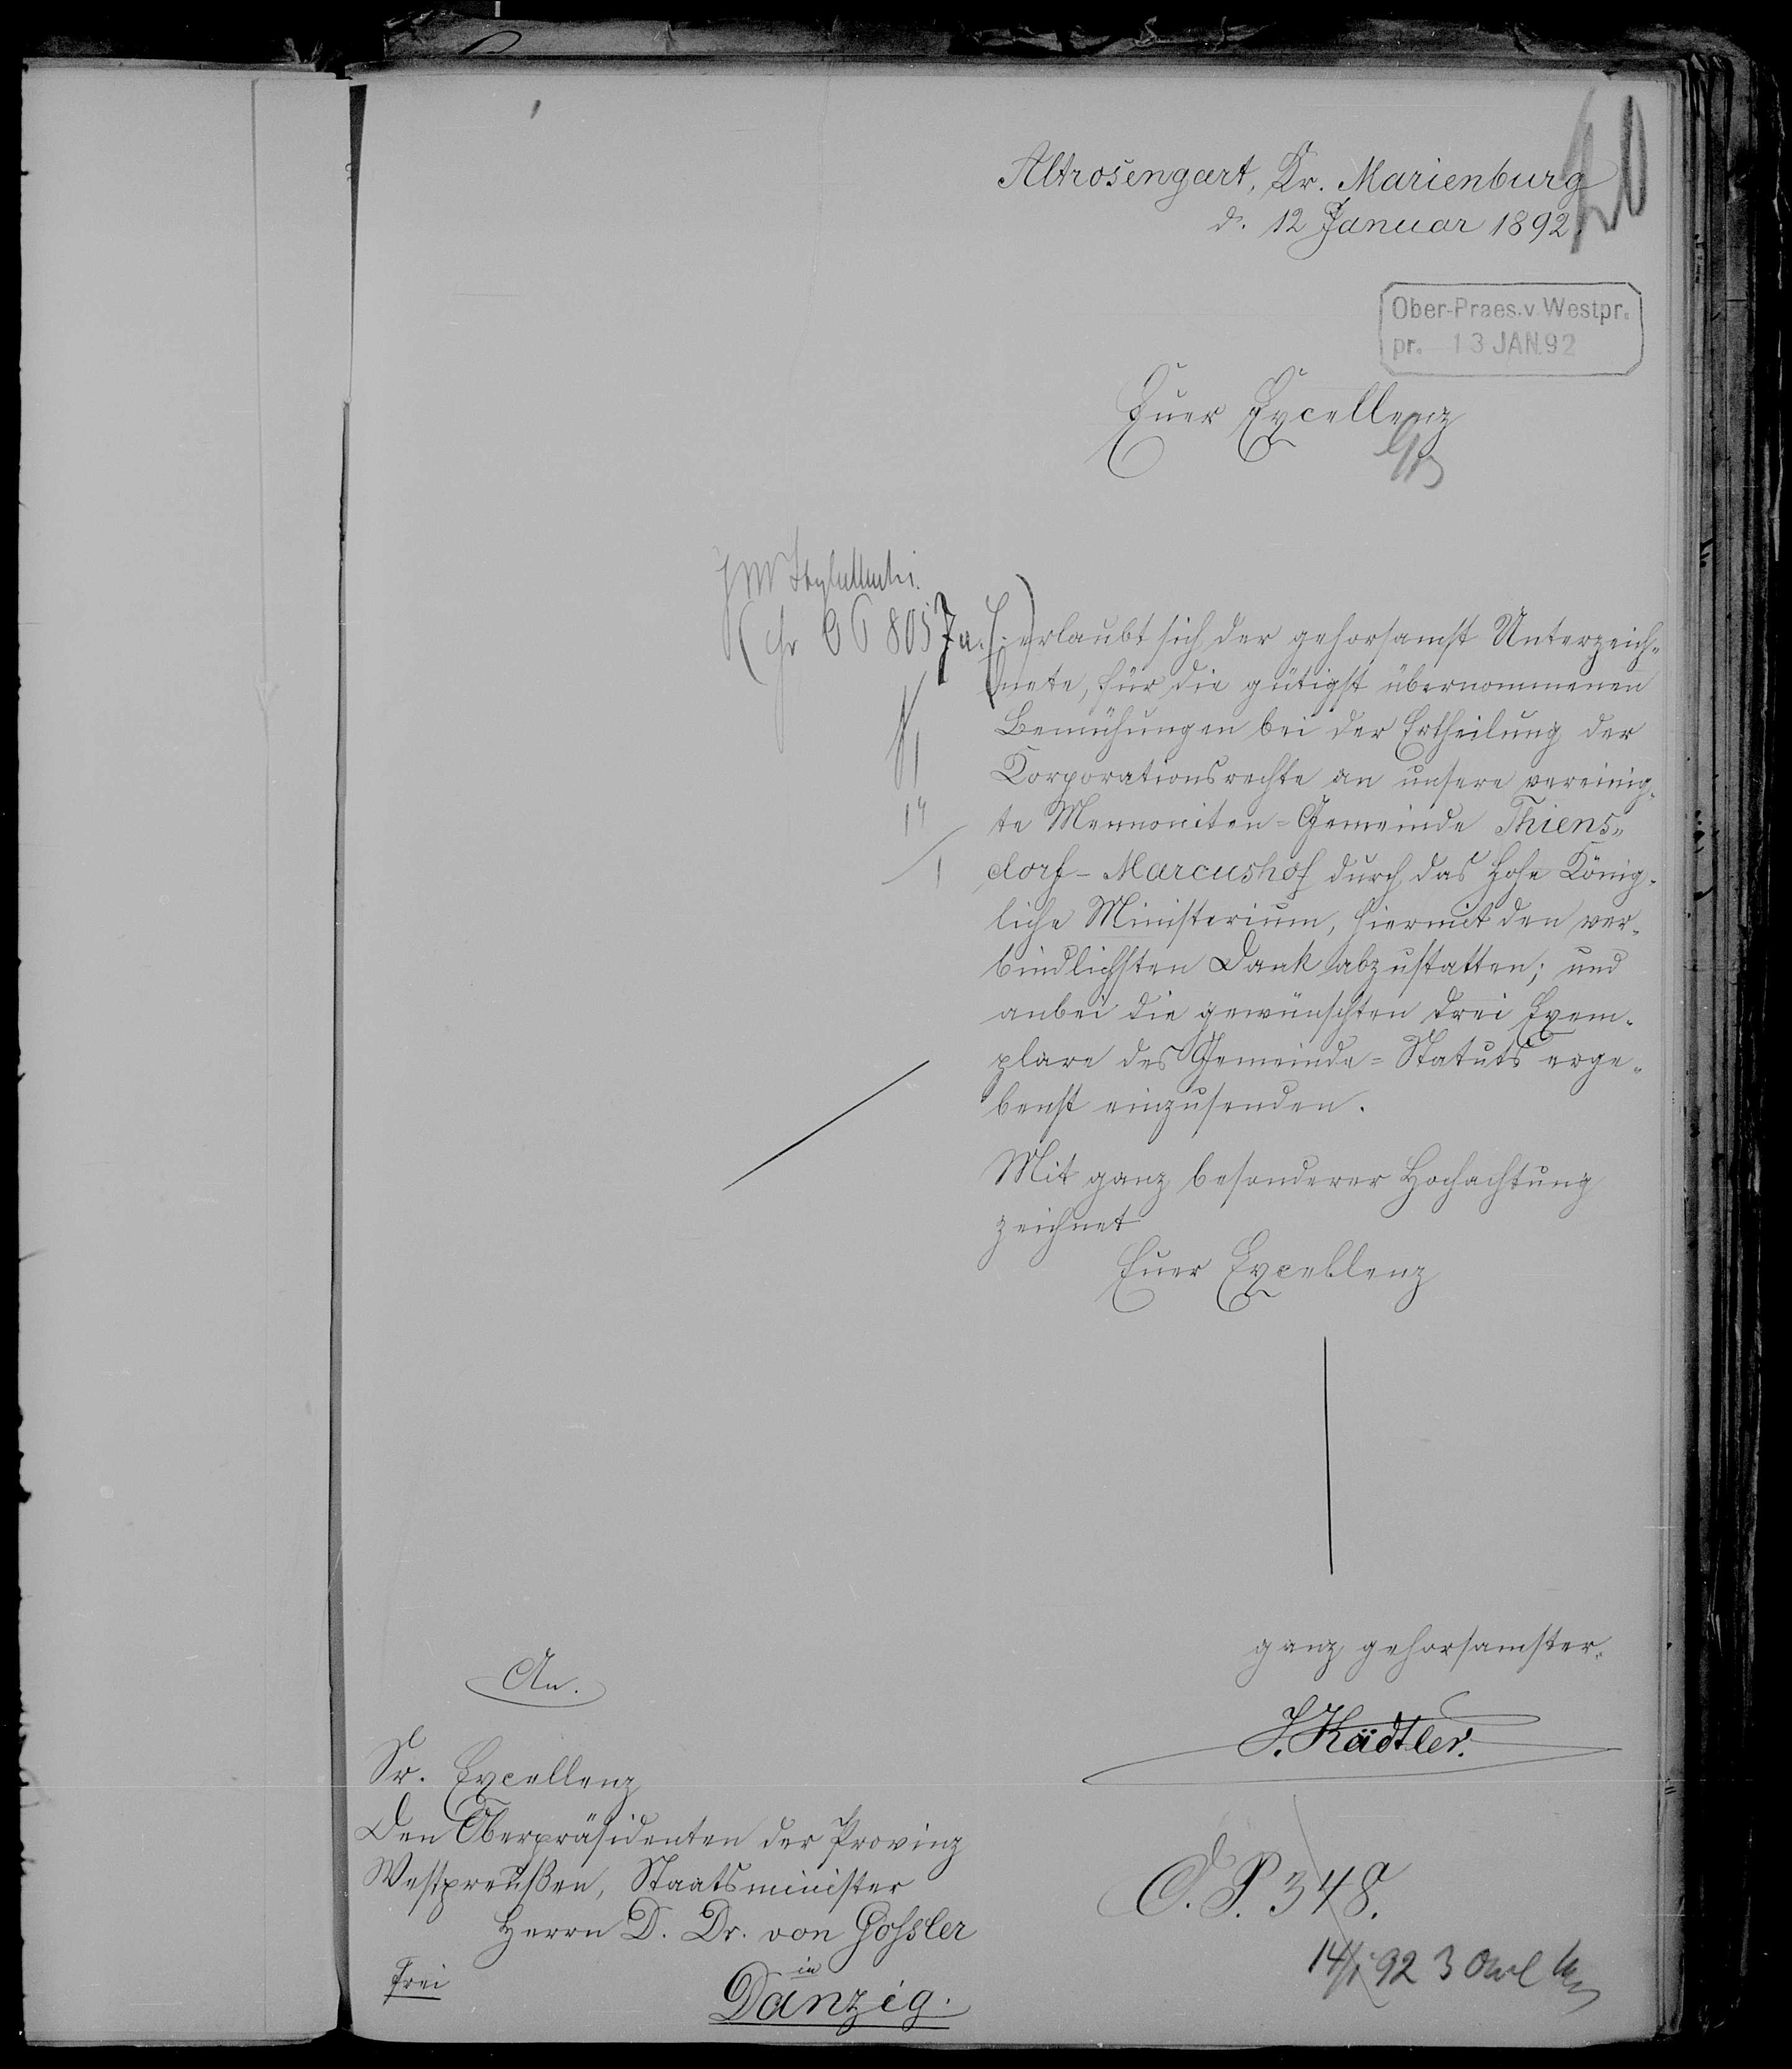 Altrosengart, Kr. Marienburg
d. 12 Januar 1892.
Ober-Praes. v. Westpr.
pr. 13 JAN. 92
Euer Excellenz
erlaubt sich der gehorsamst Unterzeich-
nete, für die gütigst übernommenen
Bemühungen bei der Ertheilung der
Korporationsrechte an unsere vereinig-
te Mennoniten-Gemeinde Thiens-
dorf-Marcushof durch das Hohe König-
liche Ministerium, hiermit den ver-
bindlichsten Dank abzustatten; und
anbei die gewünschten drei Exem-
plare des Gemeinde-Statuts erge-
benst einzusenden.
Mit ganz besonderer Hochachtung
zeichnet
Euer Excellenz
ganz gehorsamster.
J. Kädtler.
An.
Sr. Excellenz
Den Oberpräsidenten der Provinz
Westpreußen, Staatsminister
Herrn D. Dr. von Gossler
frei
in
Danzig.
O. P. 348.
14/1 92 3